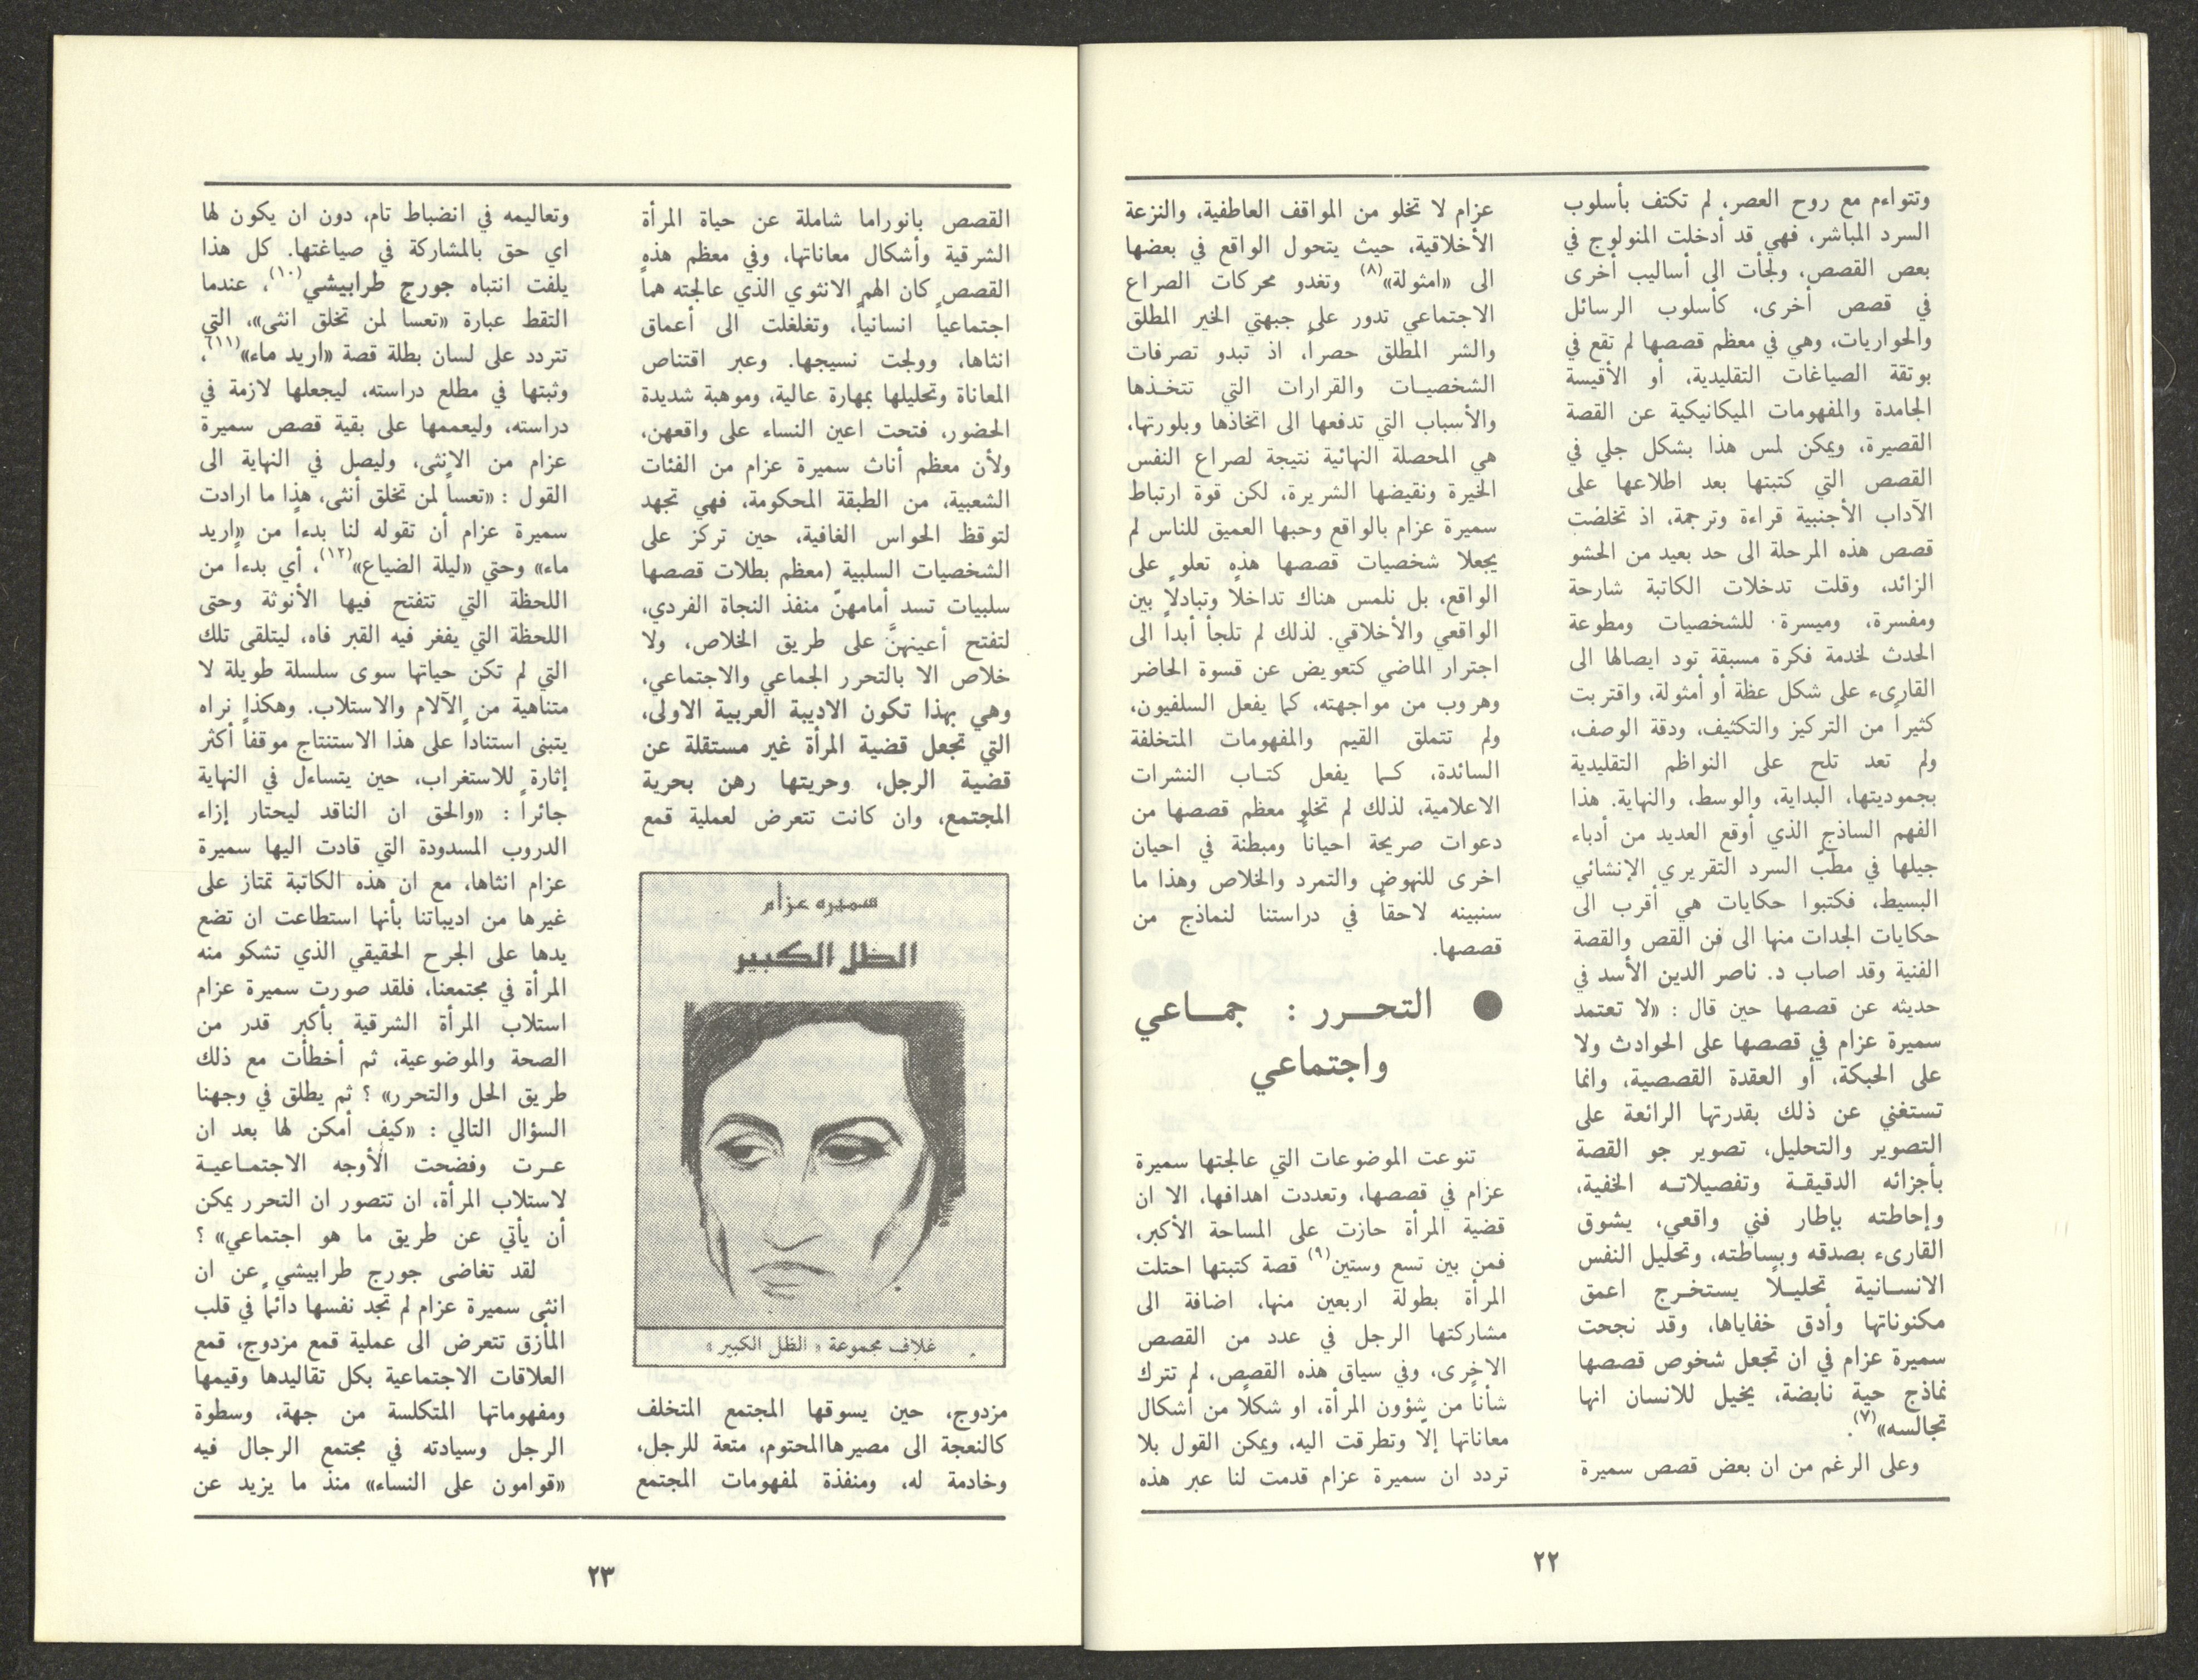 وتتواءم مع روح العصر، لم تكتف بأسلوب
السرد المباشر، فهي قد أدخلت المنولوج في
بعض القصص، ولجأت الى أساليب أخرى
في قصص أخرى، كأسلوب الرسائل
والحواريات، وهي في معظم قصصها لم تقع في
بوتقة الصياغات التقليدية، أو الأقيسة
الجامدة والمفهومات الميكانيكية عن القصة
القصيرة، ويمكن لمس هذا بشكل جلي في
القصص التي كتبتها بعد اطلاعها على
الآداب الأجنبية قراءة وترجمة، اذ تخلصت
قصص هذه المرحلة الى حد بعيد من الحشو
الزائد، وقلت تدخلات الكاتبة شارحة
ومفسرة، وميسرة للشخصيات ومطوعة
الحدث لخدمة فكرة مسبقة تود ايصالها الى
القارىء على شكل عظة أو أمثولة، واقتربت
كثيراً من التركيز والتكثيف، ودقة الوصف،
ولم تعد تلح على النواظم التقليدية
بجموديتها، البداية، والوسط، والنهاية. هذا
الفهم الساذج الذي أوقع العديد من أدباء
جيلها في مطبّ السرد التقريري الإنشائي
البسيط، فكتبوا حكايات هي أقرب الى
حكايات الجدات منها الى فن القص والقصة
الفنية وقد اصاب د. ناصر الدين الأسد في
حديثه عن قصصها حين قال : «لا تعتمد
سميرة عزام في قصصها على الحوادث ولا
على الحبكة، أو العقدة القصصية، وانما
تستغني عن ذلك بقدرتها الرائعة على
التصوير والتحليل، تصوير جو القصة
بأجزائه الدقيقة وتفصيلاته الخفية،
وإحاطته بإطار فني واقعي، يشوق
القارىء بصدقه وبساطته، وتحليل النفس
الانسانية تحليلاً يستخرج اعمق
مكنوناتها وأدق خفاياها، وقد نجحت
سميرة عزام في ان تجعل شخوص قصصها
نماذج حية نابضة، يخيل للانسان انها
تجالسه»(٧).
وعلى الرغم من ان بعض قصص سميرة
عزام لا تخلو من المواقف العاطفية، والنزعة
الأخلاقية، حيث يتحول الواقع في بعضها
الى «امثولة»(٨) وتغدو محركات الصراع
الاجتماعي تدور على جبهتي الخير المطلق
والشر المطلق حصراً، اذ تبدو تصرفات
الشخصيات والقرارات التي تتخذها
والأسباب التي تدفعها الى اتخاذها وبلورتها،
هي المحصلة النهائية نتيجة لصراع النفس
الخيرة ونقيضها الشريرة، لكن قوة ارتباط
سميرة عزام بالواقع وحبها العميق للناس لم
يجعلا شخصيات قصصها هذه تعلو على
الواقع، بل نلمس هناك تداخلاً وتبادلاً بين
الواقعي والأخلاقي. لذلك لم تلجأ أبداً الى
اجترار الماضي كتعويض عن قسوة الحاضر
وهروب من مواجهته، كما يفعل السلفيون،
ولم تتملق القيم والمفهومات المتخلفة
السائدة، كما يفعل كتاب النشرات
الاعلامية، لذلك لم تخلو معظم قصصها من
دعوات صريحة احياناً ومبطنة في احيان
اخرى للنهوض والتمرد والخلاص وهذا ما
سنبينه لاحقاً في دراستنا لنماذج من
قصصها.
● التحرر : جماعي
واجتماعي
تنوعت الموضوعات التي عالجتها سميرة
عزام في قصصها، وتعددت اهدافها، الا ان
قضية المرأة حازت على المساحة الأكبر،
فمن بين تسع وستين(٩) قصة كتبتها احتلت
المرأة بطولة اربعين منها، اضافة الى
مشاركتها الرجل في عدد من القصص
الاخرى، وفي سياق هذه القصص، لم تترك
شأناً من شؤون المرأة، او شكلاً من أشكال
معاناتها إلاّ وتطرقت اليه، ويمكن القول بلا
تردد ان سميرة عزام قدمت لنا عبر هذه
٢٢
القصص بانوراما شاملة عن حياة المرأة
الشرقية وأشكال معاناتها، وفي معظم هذه
القصص كان الهم الانثوي الذي عالجته هماً
اجتماعياً انسانياً، وتغلغلت الى أعماق
انثاها، وولجت نسيجها. وعبر اقتناص
المعاناة وتحليلها بمهارة عالية، وموهبة شديدة
الحضور، فتحت اعين النساء على واقعهن،
ولأن معظم أناث سميرة عزام من الفئات
الشعبية، من الطبقة المحكومة، فهي تجهد
لتوقظ الحواس الغافية، حين تركز على
الشخصيات السلبية (معظم بطلات قصصها
سلبيات تسد أمامهنّ منفذ النجاة الفردي،
لتفتح أعينهنَّ على طريق الخلاص، ولا
خلاص الا بالتحرر الجماعي والاجتماعي،
وهي بهذا تكون الاديبة العربية الاولى،
التي تجعل قضية المرأة غير مستقلة عن
قضية الرجل، وحريتها رهن بحرية
المجتمع، وان كانت تتعرض لعملية قمع
سميره عزام
الظل الكبير
غلاف مجموعة «الظل الكبير»
مزدوج، حين يسوقها المجتمع المتخلف
كالنعجة الى مصيرهاالمحتوم، متعة للرجل،
وخادمة له، ومنفذة لمفهومات المجتمع
وتعاليمه في انضباط تام، دون ان يكون لها
اي حق بالمشاركة في صياغتها. كل هذا
يلفت انتباه جورج طرابيشي(١٠)، عندما
التقط عبارة «تعساً لمن تخلق انثى»، التي
تتردد على لسان بطلة قصة «اريد ماء»(١١)،
وثبتها في مطلع دراسته، ليجعلها لازمة في
دراسته، وليعممها على بقية قصص سميرة
عزام من الانثى، وليصل في النهاية الى
القول : «تعساً لمن تخلق أنثى، هذا ما ارادت
سميرة عزام أن تقوله لنا بدءاً من «اريد
ماء» وحتي «ليلة الضياع»(١٢)، أي بدءاً من
اللحظة التي تتفتح فيها الأنوثة وحتى
اللحظة التي يفغر فيه القبر فاه، ليتلقى تلك
التي لم تكن حياتها سوى سلسلة طويلة لا
متناهية من الآلام والاستلاب. وهكذا نراه
يتبنى استناداً على هذا الاستنتاج موقفاً أكثر
إثارة للاستغراب، حين يتساءل في النهاية
جائراً : «والحق ان الناقد ليحتار إزاء
الدروب المسدودة التي قادت اليها سميرة
عزام انثاها، مع ان هذه الكاتبة تمتاز على
غيرها من اديباتنا بأنها استطاعت ان تضع
يدها على الجرح الحقيقي الذي تشكو منه
المرأة في مجتمعنا، فلقد صورت سميرة عزام
استلاب المرأة الشرقية بأكبر قدر من
الصحة والموضوعية، ثم أخطأت مع ذلك
طريق الحل والتحرر» ؟ ثم يطلق في وجهنا
السؤال التالي : «كيف أمكن لها بعد ان
عرت وفضحت الأوجه الاجتماعية
لاستلاب المرأة، ان تتصور ان التحرر يمكن
أن يأتي عن طريق ما هو اجتماعي» ؟
لقد تغاضى جورج طرابيشي عن ان
انثى سميرة عزام لم تجد نفسها دائماً في قلب
المأزق تتعرض الى عملية قمع مزدوج، قمع
العلاقات الاجتماعية بكل تقاليدها وقيمها
ومفهوماتها المتكلسة من جهة، وسطوة
الرجل وسيادته في مجتمع الرجال فيه
«قوامون على النساء» منذ ما يزيد عن
٢٣